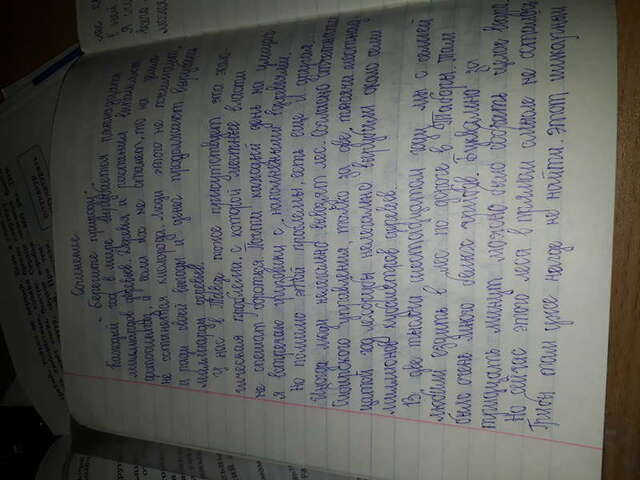 Сочинение
"Берегите природу"
Каждый год в мире вырубается пятнадцать
миллиардов деревьев. Деревья и растения выполняют
фотосинтез, и если их не станет, то на земле
не останется кислорода. Люди этого не понимают
и ради своей выгоды и денег продолжают вырубать
миллиарды деревьев.
У нас в Тавде тоже присутствует эта эколо-
гическая проблема, с которой местные власти
не спешат бороться. Почти каждый день на улицах
я встречаю грузовики с наполненными деревьями.
Но помимо этой проблемы, есть еще и другая.
Иногда люди нелегально вывозят лес. Согласно статистике
Сибирского управления, только за две тысячи шестнад
цатый год лесорубы нелегально вырубили около семи
миллионов кубометров деревьев.
В две тысячи шестнадцатом году мы с семьей
любили ездить в лес по дороге в Таборы. Там
было очень много белых грибов. Буквально за
тридцать минут можно было собрать целое ведро.
Но сейчас этого леса в прямом смысле не осталось
Грибы там уже негде не найти. Этот шикарный
лес
в нем
Я